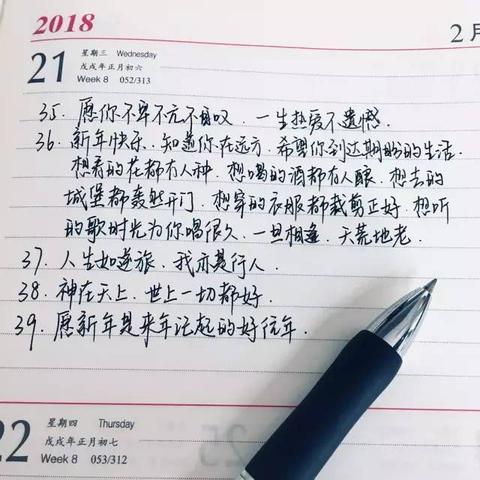 2018
2月
21
星期三 Wednesday
戊戌年正月初六
Week 8 052/313
35. 愿你不卑不亢不自叹. 一生热爱不遗憾.
36. 新年快乐. 知道你在远方. 希望你到达期盼的生活.
想看的花都有人种. 想喝的酒都有人酿. 想去的
城堡都轰然开门. 想穿的衣服都裁剪正好. 想听
的歌时光为你唱很久. 一旦相逢. 天荒地老.
37. 人生如逆旅. 我亦是行人.
38. 神在天上. 世上一切都好.
39. 愿新年是来年记起的好往年.
22
星期四 Thursday
戊戌年正月初七
Week 8 053/312
25